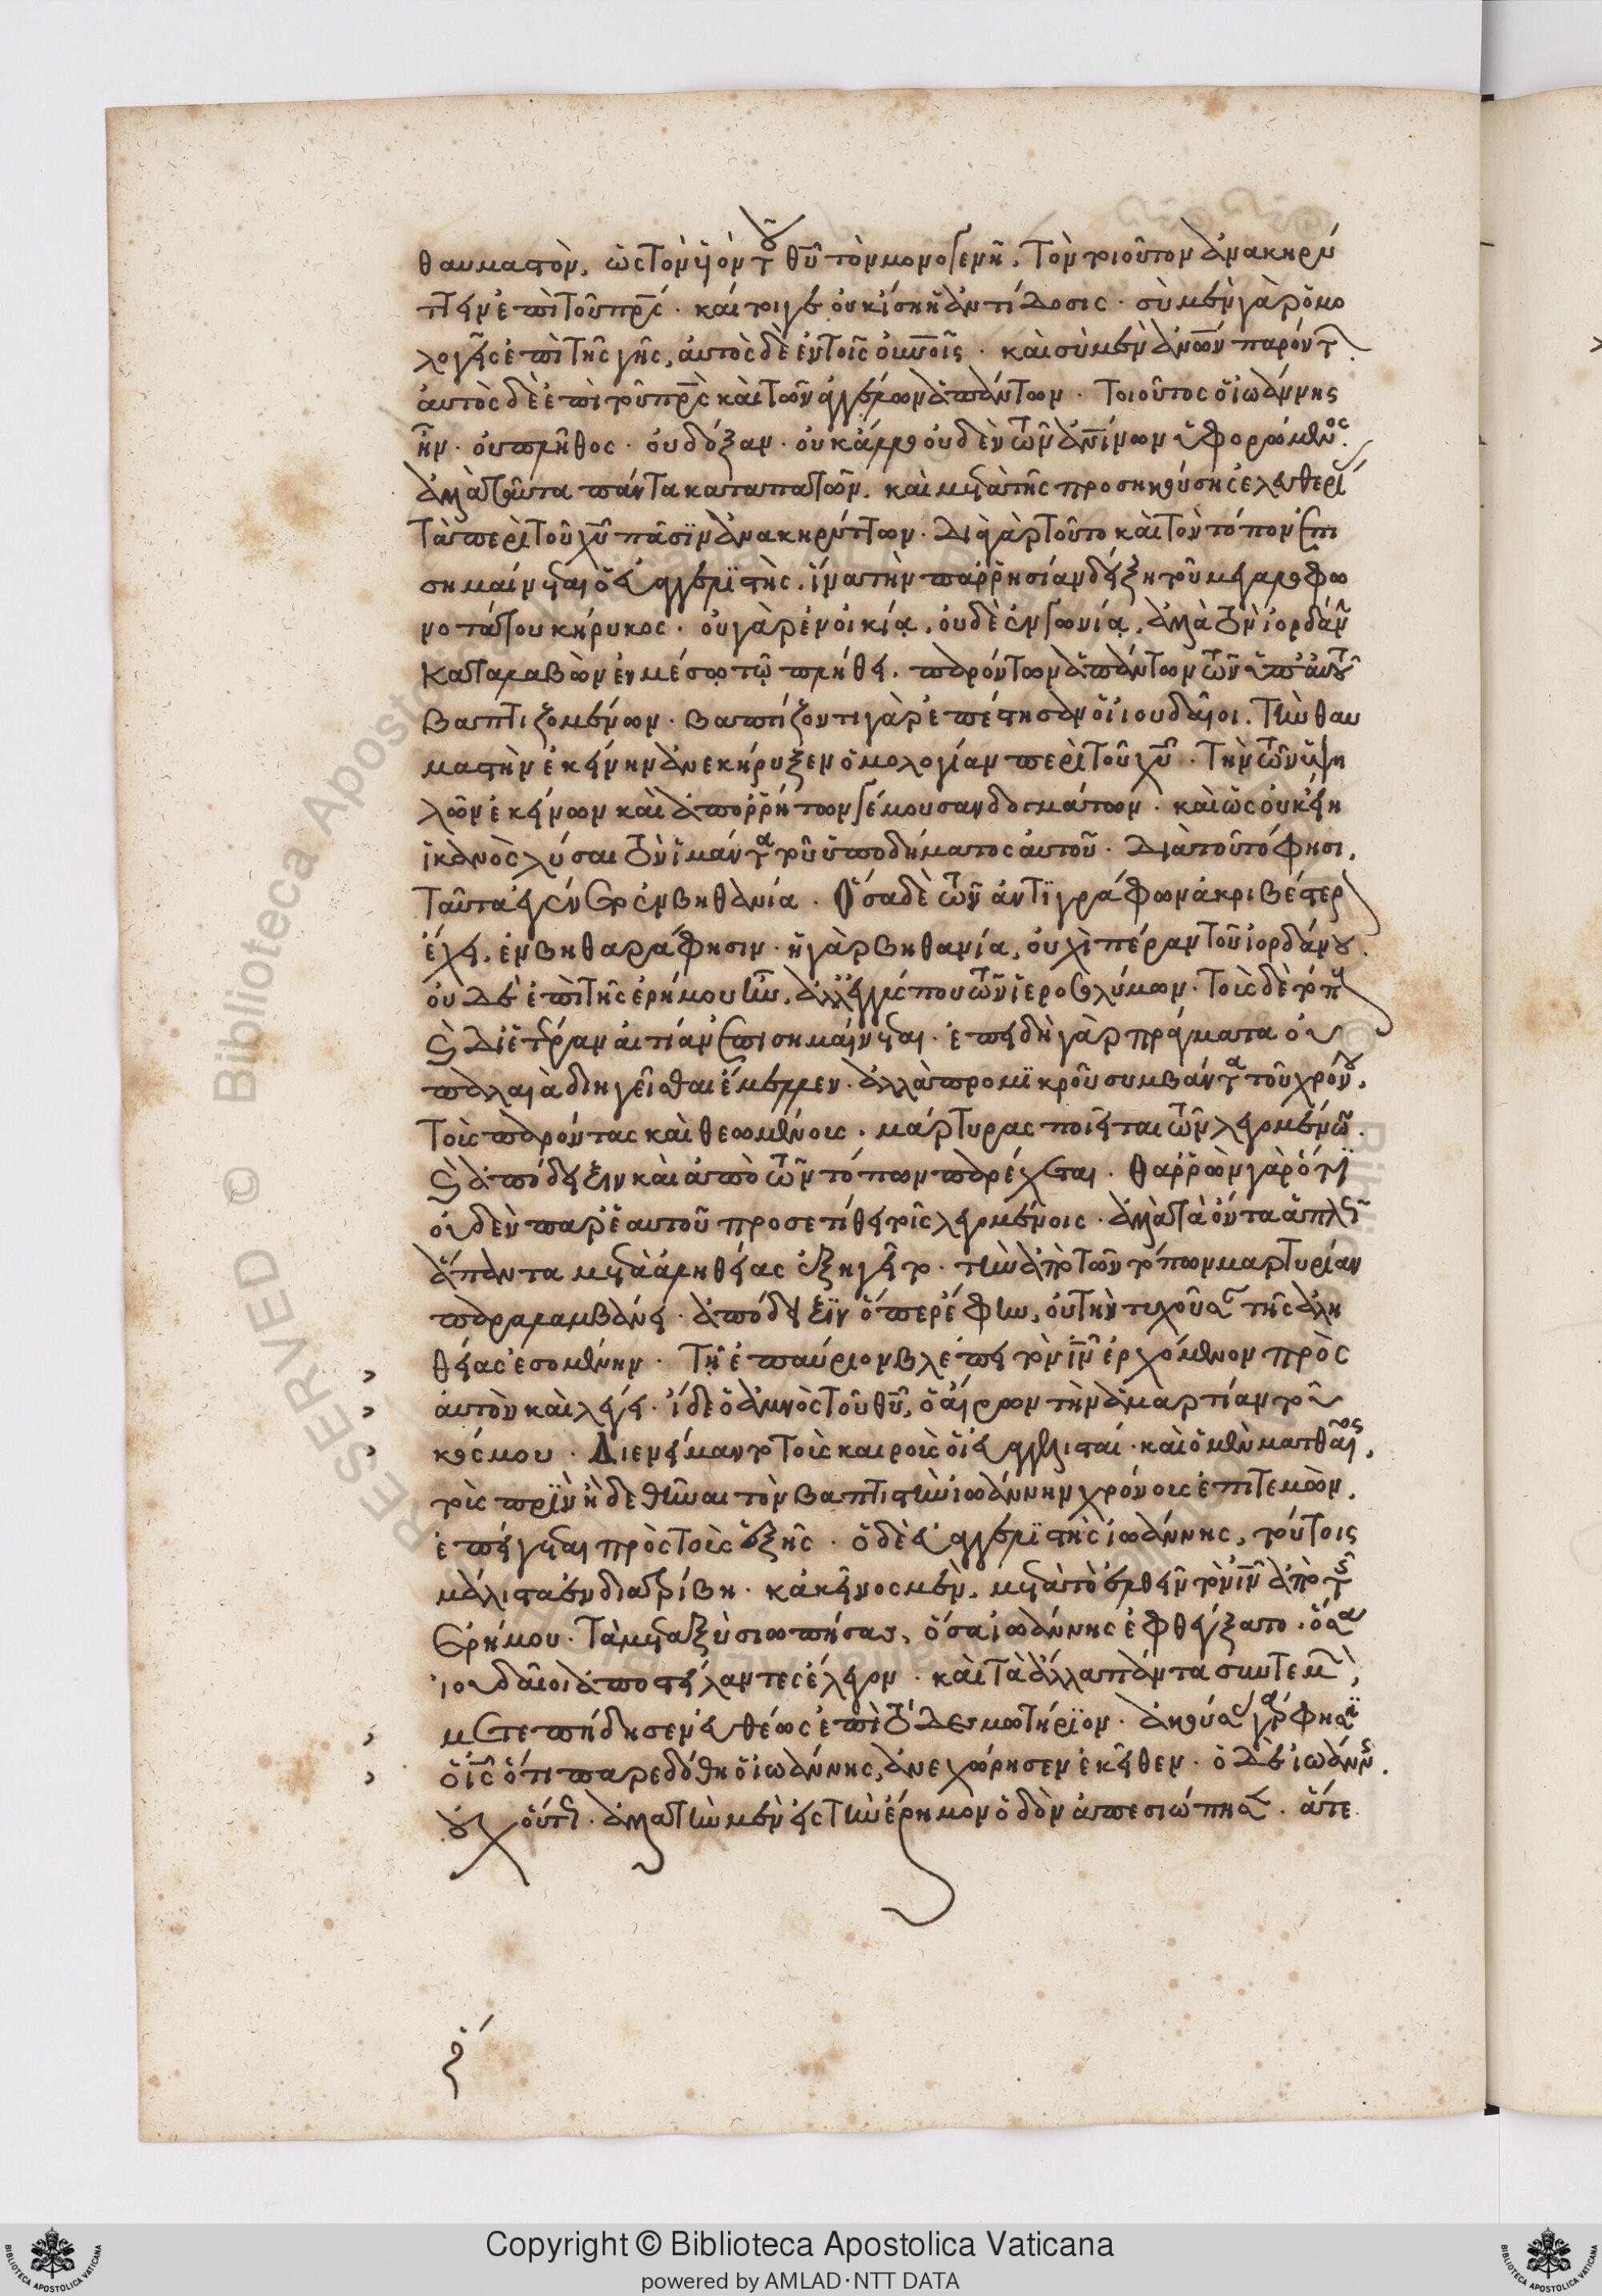 θαυμαστὸν, ὡς τὸν ϋἱὸν τοῦ θῡ τὸν μονογενῆ. τὸν τοιοῦτον ἀνακηρύ
πτειν ἐπὶ τοῦ πρ̅ς. καί τοιγε οὐκ ἴση ἡ ἀντίδοσις. σὺ μὲν γὰρ ὁμο
λογεῖς ἐπὶ τῆς γῆς, αὐτὸς δὲ ἐν τοῖς οὐν̅οῖς. καὶ σὺ μὲν ἀν̅ων παρόντ
αὐτὸς δὲ ἐπὶ τοῦ πρ̅ς καὶ τῶν ἀγγέλων ἁπάντων. Τοιοῦτος ὁ ἰωάννης
ἦν. οὐ πλῆθος. οὐ δόξαν. οὐκ ἄλλο οὐδὲν τῶν ἀν̅ίνων ὑφορώμενος.
ἀλλὰ ταῦτα πάντα καταπατῶν. καὶ μετὰ τῆς προσηκούσης ἐλευθερί
τὰ περὶ τοῦ χῡ πᾶσϊν ἀνακηρύττων. διὰ γὰρ τοῦτο καὶ τὸν τόπον ἐπι
σημαίνεται ὁ εὐαγγελϊστὴς. ἵνα τὴν παρρησίαν δείξη τοῦ μεγαλοφω
νοτάτου κήρυκος. οὐ γὰρ ἐν οἰκίᾳ, οὐδὲ ἐν γωνίᾳ, ἀλλὰ τὸν ἰορδάν
καταλαβὼν ἐν μέσῳ τῷ πλήθει. παρόντων ἁπάντων τῶν ὑπ' αὐτοῦ
βαπτιζομένων. βαπτίζοντι γὰρ ἐπέστησαν οἱ ἰουδαῖοι. τὴν θαυ
μαστὴν ἐκείνην ἀνεκήρυξεν ὁμολογίαν περὶ τοῦ χῡ. τὴν τῶν ὑψη
λῶν ἐκείνων καὶ ἀπορρήτων γέμουσαν δογμάτων. καὶ ὡς οὐκ εἴη
ἱκανὸς λύσαι τὸν ἱμάντα τοῦ ὑποδήματος αὐτοῦ. διὰ τοῦτό φησι,
ταῦτα ἐγένετο ἐν βηθανία. ὅσα δὲ τῶν ἀντϊγράφων ἀκριβέστερ
ἔχει. ἐν βηθαρά φησιν. ἡ γὰρ βηθανία, οὐχὶ πέραν τοῦ ἰορδάνου.
οὐ δὲ ἐπὶ τῆς ἐρήμου ἦν. ἀλλ' ἐγγύς που τῶν ἱεροσολύμων. τοὺς δὲ τόπ
ϗ δι' ἑτέραν αἰτίαν ἐπισημαίνεται. ἐπειδὴ γὰρ πράγματα οὐ
παλαιὰ διηγεῖσθαι ἔμελλεν. ἀλλὰ πρὸ μϊκροῦ συμβάντα τοῦ χρόνου.
τοὺς παρόντας καὶ θεωμένους. μάρτυρας ποιεῖται τῶν λεγομένων.
ϗ ἀπόδειξιν καὶ ἀπὸ τῶν τόπων παρέχεται. θαρρῶν γὰρ ὅτϊ
οὐδὲν παρ' ἑαυτοῦ προσετίθει τοῖς λεγομένοις. ἀλλὰ τὰ ὄντα ἁπλῶς
ἅπαντα μετὰ ἀληθείας ἐξηγεῖτο. τὴν ἀπὸ τῶν τόπων μαρτυρίαν
παραλαμβάνει. ἀπόδειξϊν ὅπερ ἔφην, οὐ τὴν τυχοῦσαν τῆς ἀλη
θείας ἐσομένην. Τῇ ἐπαύριον βλέπει τὸν ἰν̅ ἐρχόμενον πρὸς
αὐτὸν καὶ λέγει. ἴδε ὁ ἀμνὸς τοῦ θῡ, ὁ αἴρων τὴν ἁμαρτίαν τοῦ
κόσμου. Διενείμαντο τοὺς καιροὺς οἱ εὐαγγελισταί. καὶ ὁ μὲν ματθαῖος,
τοὺς πρϊν ἢ δεθῆναι τὸν βαπτιστὴν ἰωάννην χρόνους ἐπιτεμὼν.
ἐπείγεται πρὸς τοὺς ἑξῆς. ὁ δὲ εὐαγγελϊστὴς ἰωάννης, τούτοις
μάλιστα ἐνδιατρίβει. κἀκεῖνος μὲν, μετὰ τὸ ἐλθεῖν τὸν ἰν̅ ἀπὸ τῆς
ἐρήμου. τὰ μεταξὺ σιωπήσας, ὅσα ἰωάννης ἐφθέγξατο. ὅσα
ἰουδαῖοι ἀποστείλαντες ἔλεγον. καὶ τὰ ἄλλα πάντα συντεμὼν,
μετεπήδησεν εὐθέως ἐπὶ τὸ δεσμωτήρϊον. ἀκούσας γάρ φησιν
ὁ ἰς̅ ὅτι παρεδόθη ὁ ἰωάννης, ἀνεχώρησεν ἐκεῖθεν. ὁ δὲ ἰωάννης.
οὐχ οὕτως. ἀλλὰ τὴν μὲν εἰς τὴν ἔρημον ὁδὸν ἀπεσιώπησεν. ἅτε